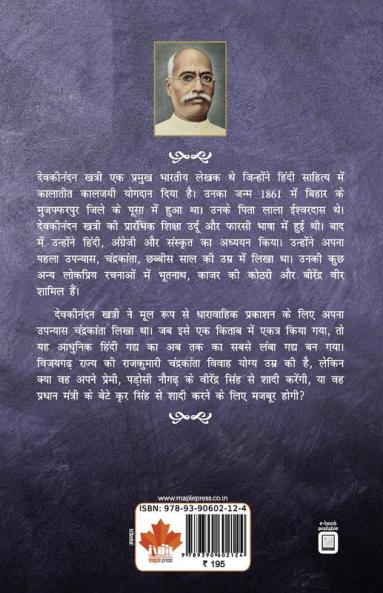 देवकीनंदन खत्री एक प्रमुख भारतीय लेखक थे जिन्होंने हिंदी साहित्य में
कालातीत कालजयी योगदान दिया है। उनका जन्म 1861 में बिहार के
मुजफ्फरपुर जिले के पूसा में हुआ था। उनके पिता लाला ईश्वरदास थे।
देवकीनंदन खत्री की प्रारंभिक शिक्षा उर्दू और फारसी भाषा में हुई थी। बाद
में उन्होंने हिंदी, अंग्रेजी और संस्कृत का अध्ययन किया। उन्होंने अपना
पहला उपन्यास, चंद्रकांता, छब्बीस साल की उम्र में लिखा था। उनकी कुछ
अन्य लोकप्रिय रचनाओं में भूतनाथ, काजर की कोठरी और बीरेंद्र वीर
शामिल हैं।
देवकीनंदन खत्री ने मूल रूप से धारावाहिक प्रकाशन के लिए अपना
उपन्यास चंद्रकांता लिखा था। जब इसे एक किताब में एकत्र किया गया, तो
यह आधुनिक हिंदी गद्य का अब तक का सबसे लंबा गद्य बन गया।
विजयगढ़ राज्य की राजकुमारी चंद्रकांता विवाह योग्य उम्र की है, लेकिन
क्या वह अपने प्रेमी, पड़ोसी नौगढ़ के वीरेंद्र सिंह से शादी करेंगी, या वह
प्रधान मंत्री के बेटे क्रूर सिंह से शादी करने के लिए मजबूर होगी?
www.maplepress.co.in
ISBN: 978-93-90602-12-4
maple press
9789390602124
₹ 195
e-book
available